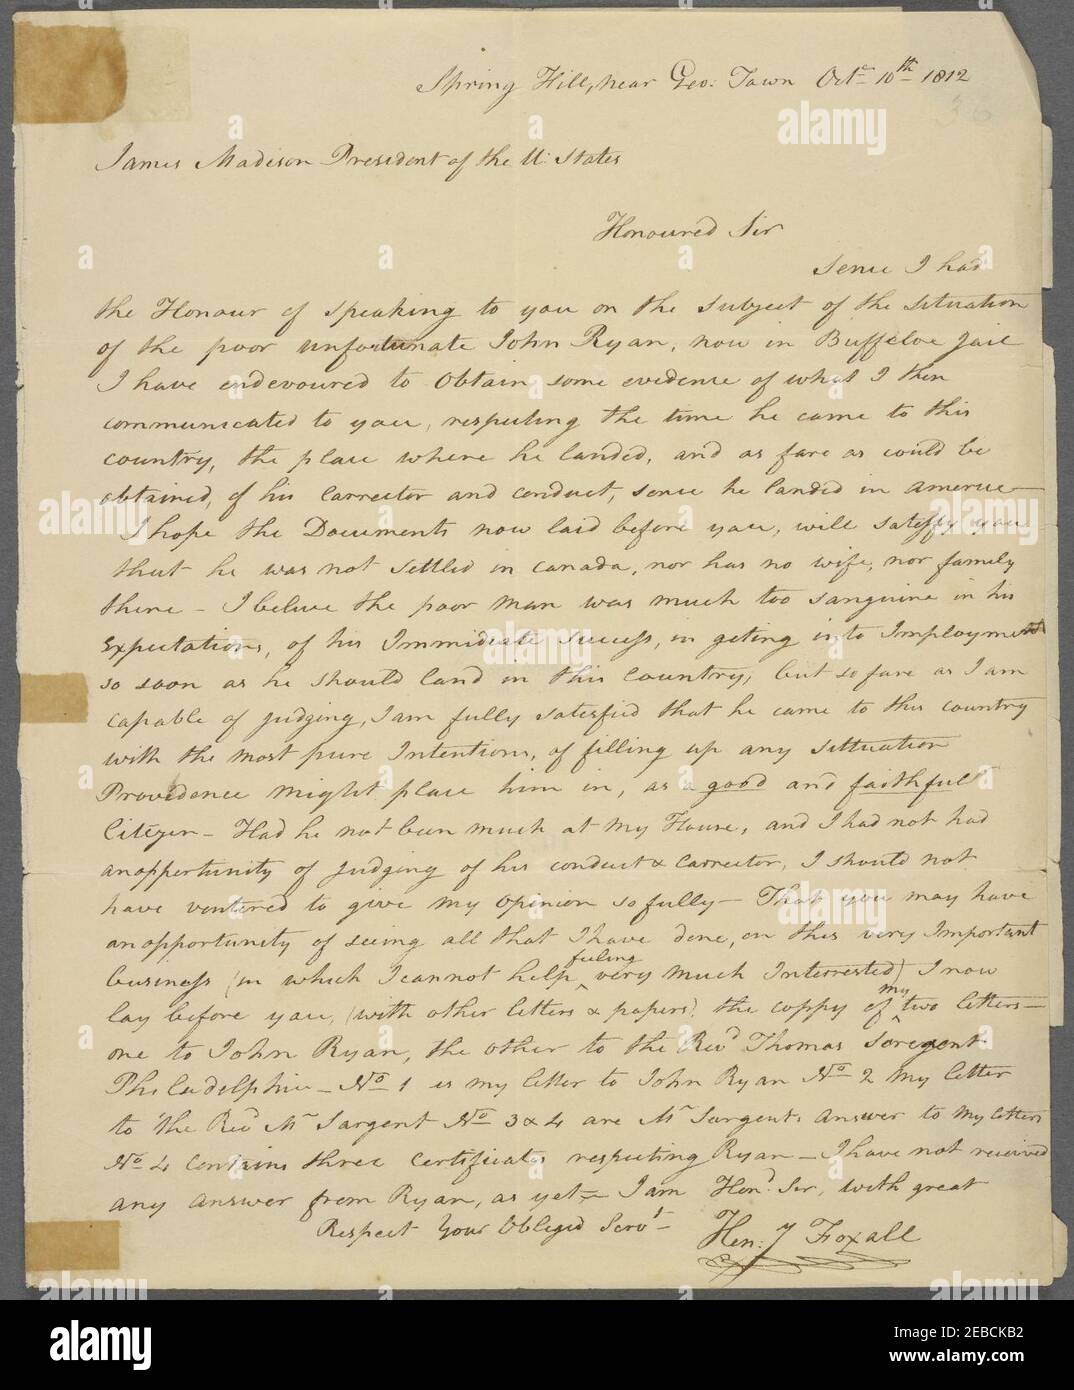 Spring Hill, near Geo: Town Octr 10th 1812
36
James Madison President of the U: States
Honoured Sir
Sence I had
the Honour of speaking to you on the subject of the situation
of the poor unfortunate John Ryan, now in Buffeloe Jail
I have endevoured to obtain some evidence of what I then
communicated to you, respecting the time he came to this
country, the place where he landed, and as fare as could be
obtained, of his Carrector and conduct, sence he landed in America—
I hope the Documents now laid before you, will satesfy you
that he was not settled in Canada, nor has no wife, nor family
there – I beleve the poor man was much too sanguine in his
Expectations, of his Immidiate success, in geting into Imployment
so soon as he should land in this Country, but so fare as I am
capable of judging, I am fully satesfied that he came to this country
with the most pure Intentions, of filling up any sittuation
Providence might place him in, as a good and faithful
Citezen – Had he not been much at my House, and I had not had
an opportunity of judging of his conduct & Carrector, I should not
have ventered to give my opinion so fully – That you may have
an opportunity of seeing all that I have done, on this very Important
business (in which I cannot help feeling very much Interrested) I now
lay before you, (with other letters & papers), the coppy of my two letters—
one to John Ryan, the other to the Revd Thomas Soregent
Philadelphia – No 1 is my letter to John Ryan No 2 my letter
to the Revd Mr Sargent No 3 & 4 are Mr Sargents answer to my letters
No 4 contains three certificates respecting Ryan – I have not received
any answer from Ryan, as yet – I am Hond Sir, with great
Respect Your Obleged Servt –
Hen: Foxall
alamy
Image ID: 2EBCKB2
www.alamy.com